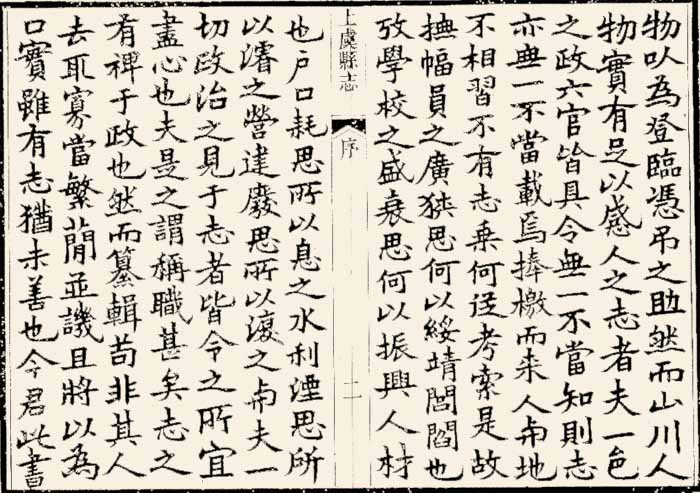 物㕥為登臨憑吊之助然而山川人
物實有足以感人之志者夫一邑
之政六官皆具令無一不當知則志
亦無一不當載焉捧檄而来人与地
不相習不有志乗何従考索是故
撫幅員之廣狹思何以綏靖閭閻也
攷學校之盛衰思何以振興人材
上虞縣志 序 二
也戶口耗思所以息之水利湮思所
以濬之營建廢思所以復之与夫一
切政治之見于志者皆令之所宜
盡心也夫是之謂稱職甚矣志之
有裨于政也然而纂輯苟非其人
去取寡當繁蕳並譏且將以為
口實雖有志猶未善也今君此書